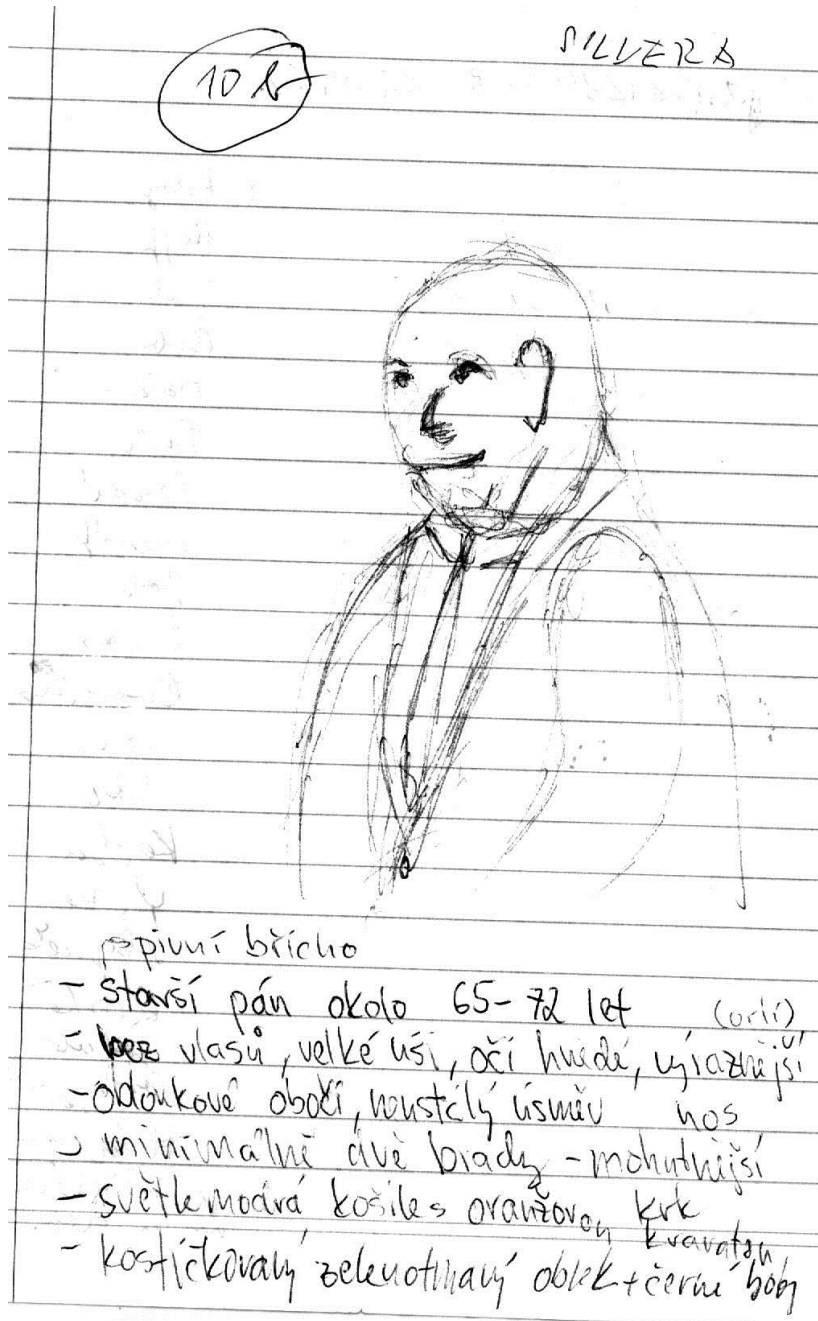 SILVERA
10 b
pivní břicho
- starší pán okolo 65-72 let (orlí)
- bez vlasů, velké uši, oči hnědé, výraznější
- obloukové obočí, neustálý úsměv nos
- minimálně dvě brady - mohutnější
- světle modrá košile s oranžovou krk
kravatou
- kostičkovaný zelenotmavý oblek + černé boty